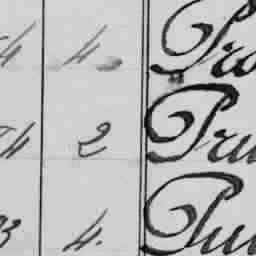 4 4. Pro
4 2 Pru
3 4. Pu